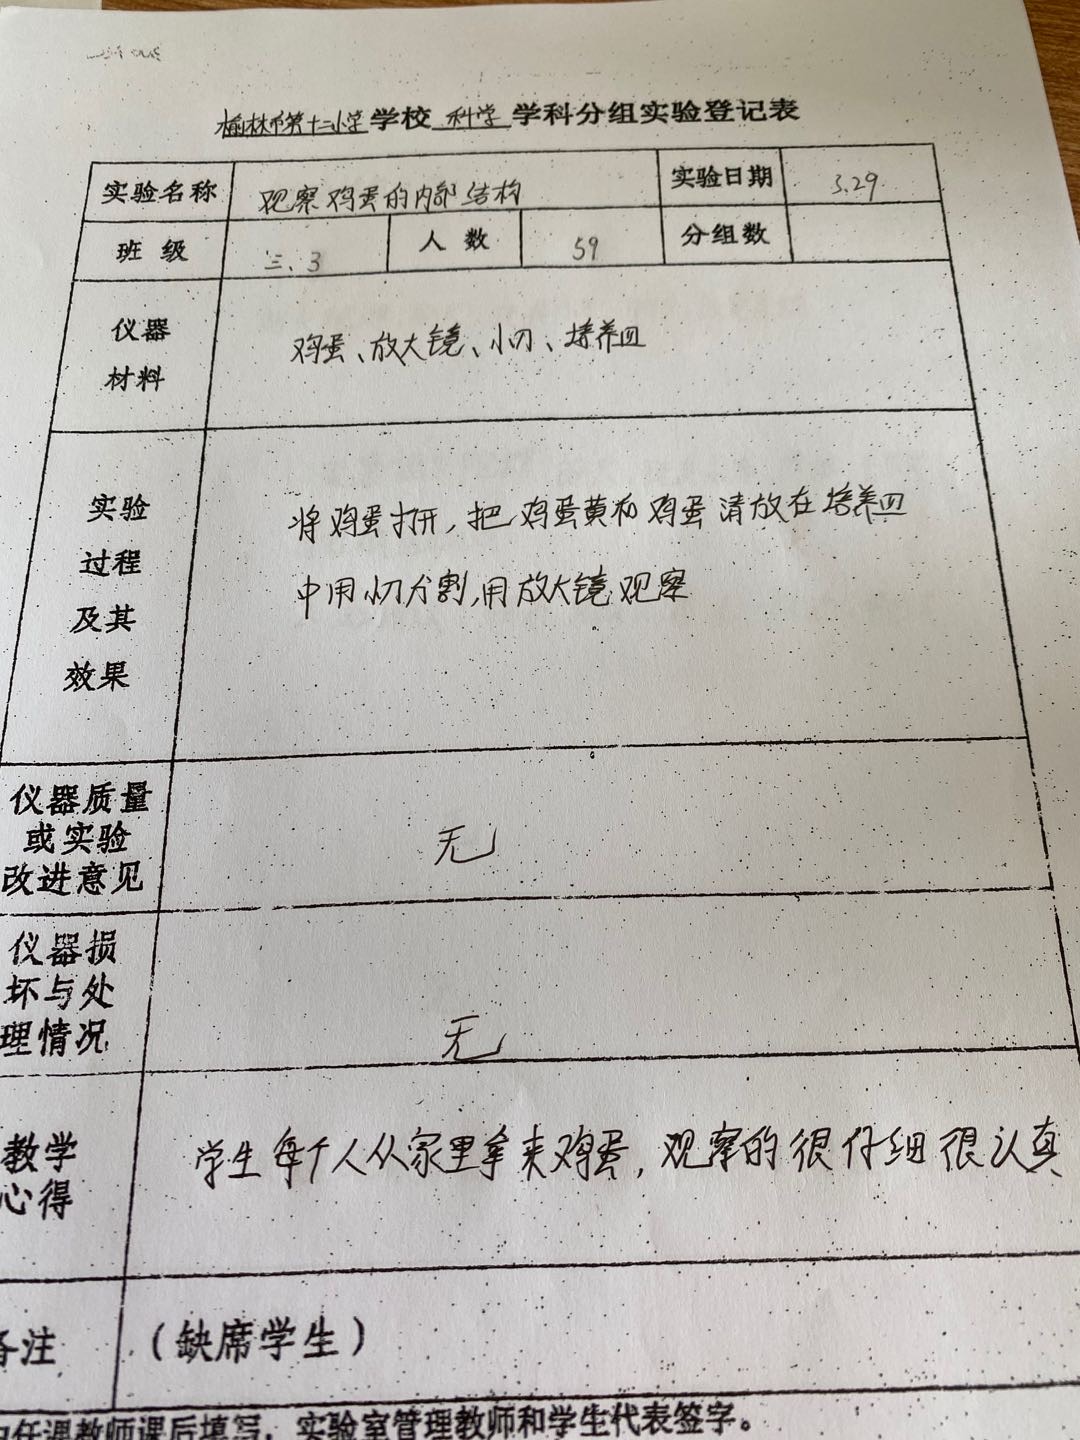 榆林市第十二小学学校 科学 学科分组实验登记表
实验名称 观察鸡蛋的内部结构 实验日期 3.29
班 级 三.3 人 数 59 分组数
仪器
材料
鸡蛋、放大镜、小刀、培养皿
实验
过程
及其
效果
将鸡蛋打开,把鸡蛋黄和鸡蛋清放在培养皿
中用小刀分割,用放大镜观察
仪器质量
或实验
改进意见
无
仪器损
坏与处
理情况
无
教学
心得
学生每个人从家里拿来鸡蛋,观察的很仔细很认真
备注 (缺席学生)
任课教师课后填写,实验室管理教师和学生代表签字。